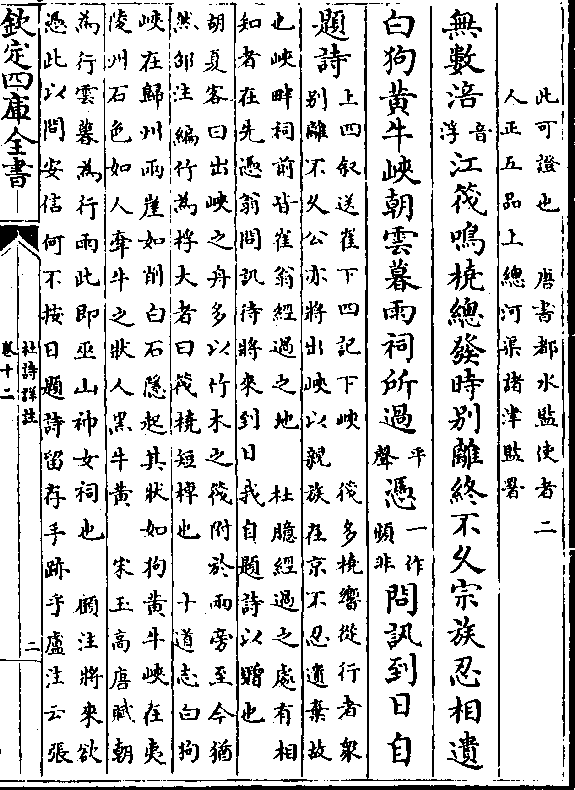 此可證也　唐書都水監使者二
人正五品上總河渠諸津監署
無數涪音浮江筏鳴橈總發時别離終不久宗族忍相遺
白狗黃牛峽朝雲暮雨祠所過平聲憑一作頻非問訊到日自
題詩上四叙送崔下四記下峽　筏多橈響從行者衆
别離不久公亦將出峽以親族在京不忍遺棄故
也峽畔祠前皆崔翁經過之地　杜臆經過之處有相
知者在先憑翁問訊待將來到日我自題詩以贈也
胡夏客曰出峽之舟多以竹木之筏附於兩旁至今猶
然邵注編竹為桴大者曰筏橈短棹也　十道志白狗
峽在歸州兩崖如削白石隱起其狀如狗黃牛峽在夷
陵州石色如人牽牛之狀人黑牛黃　宋玉高唐賦朝
為行雲暮為行雨此即巫山神女祠也　顧注將來欲
憑此以問安信何不按日題詩留存手跡乎盧注云張
欽定四庫全書
杜詩詳註
卷十二
二